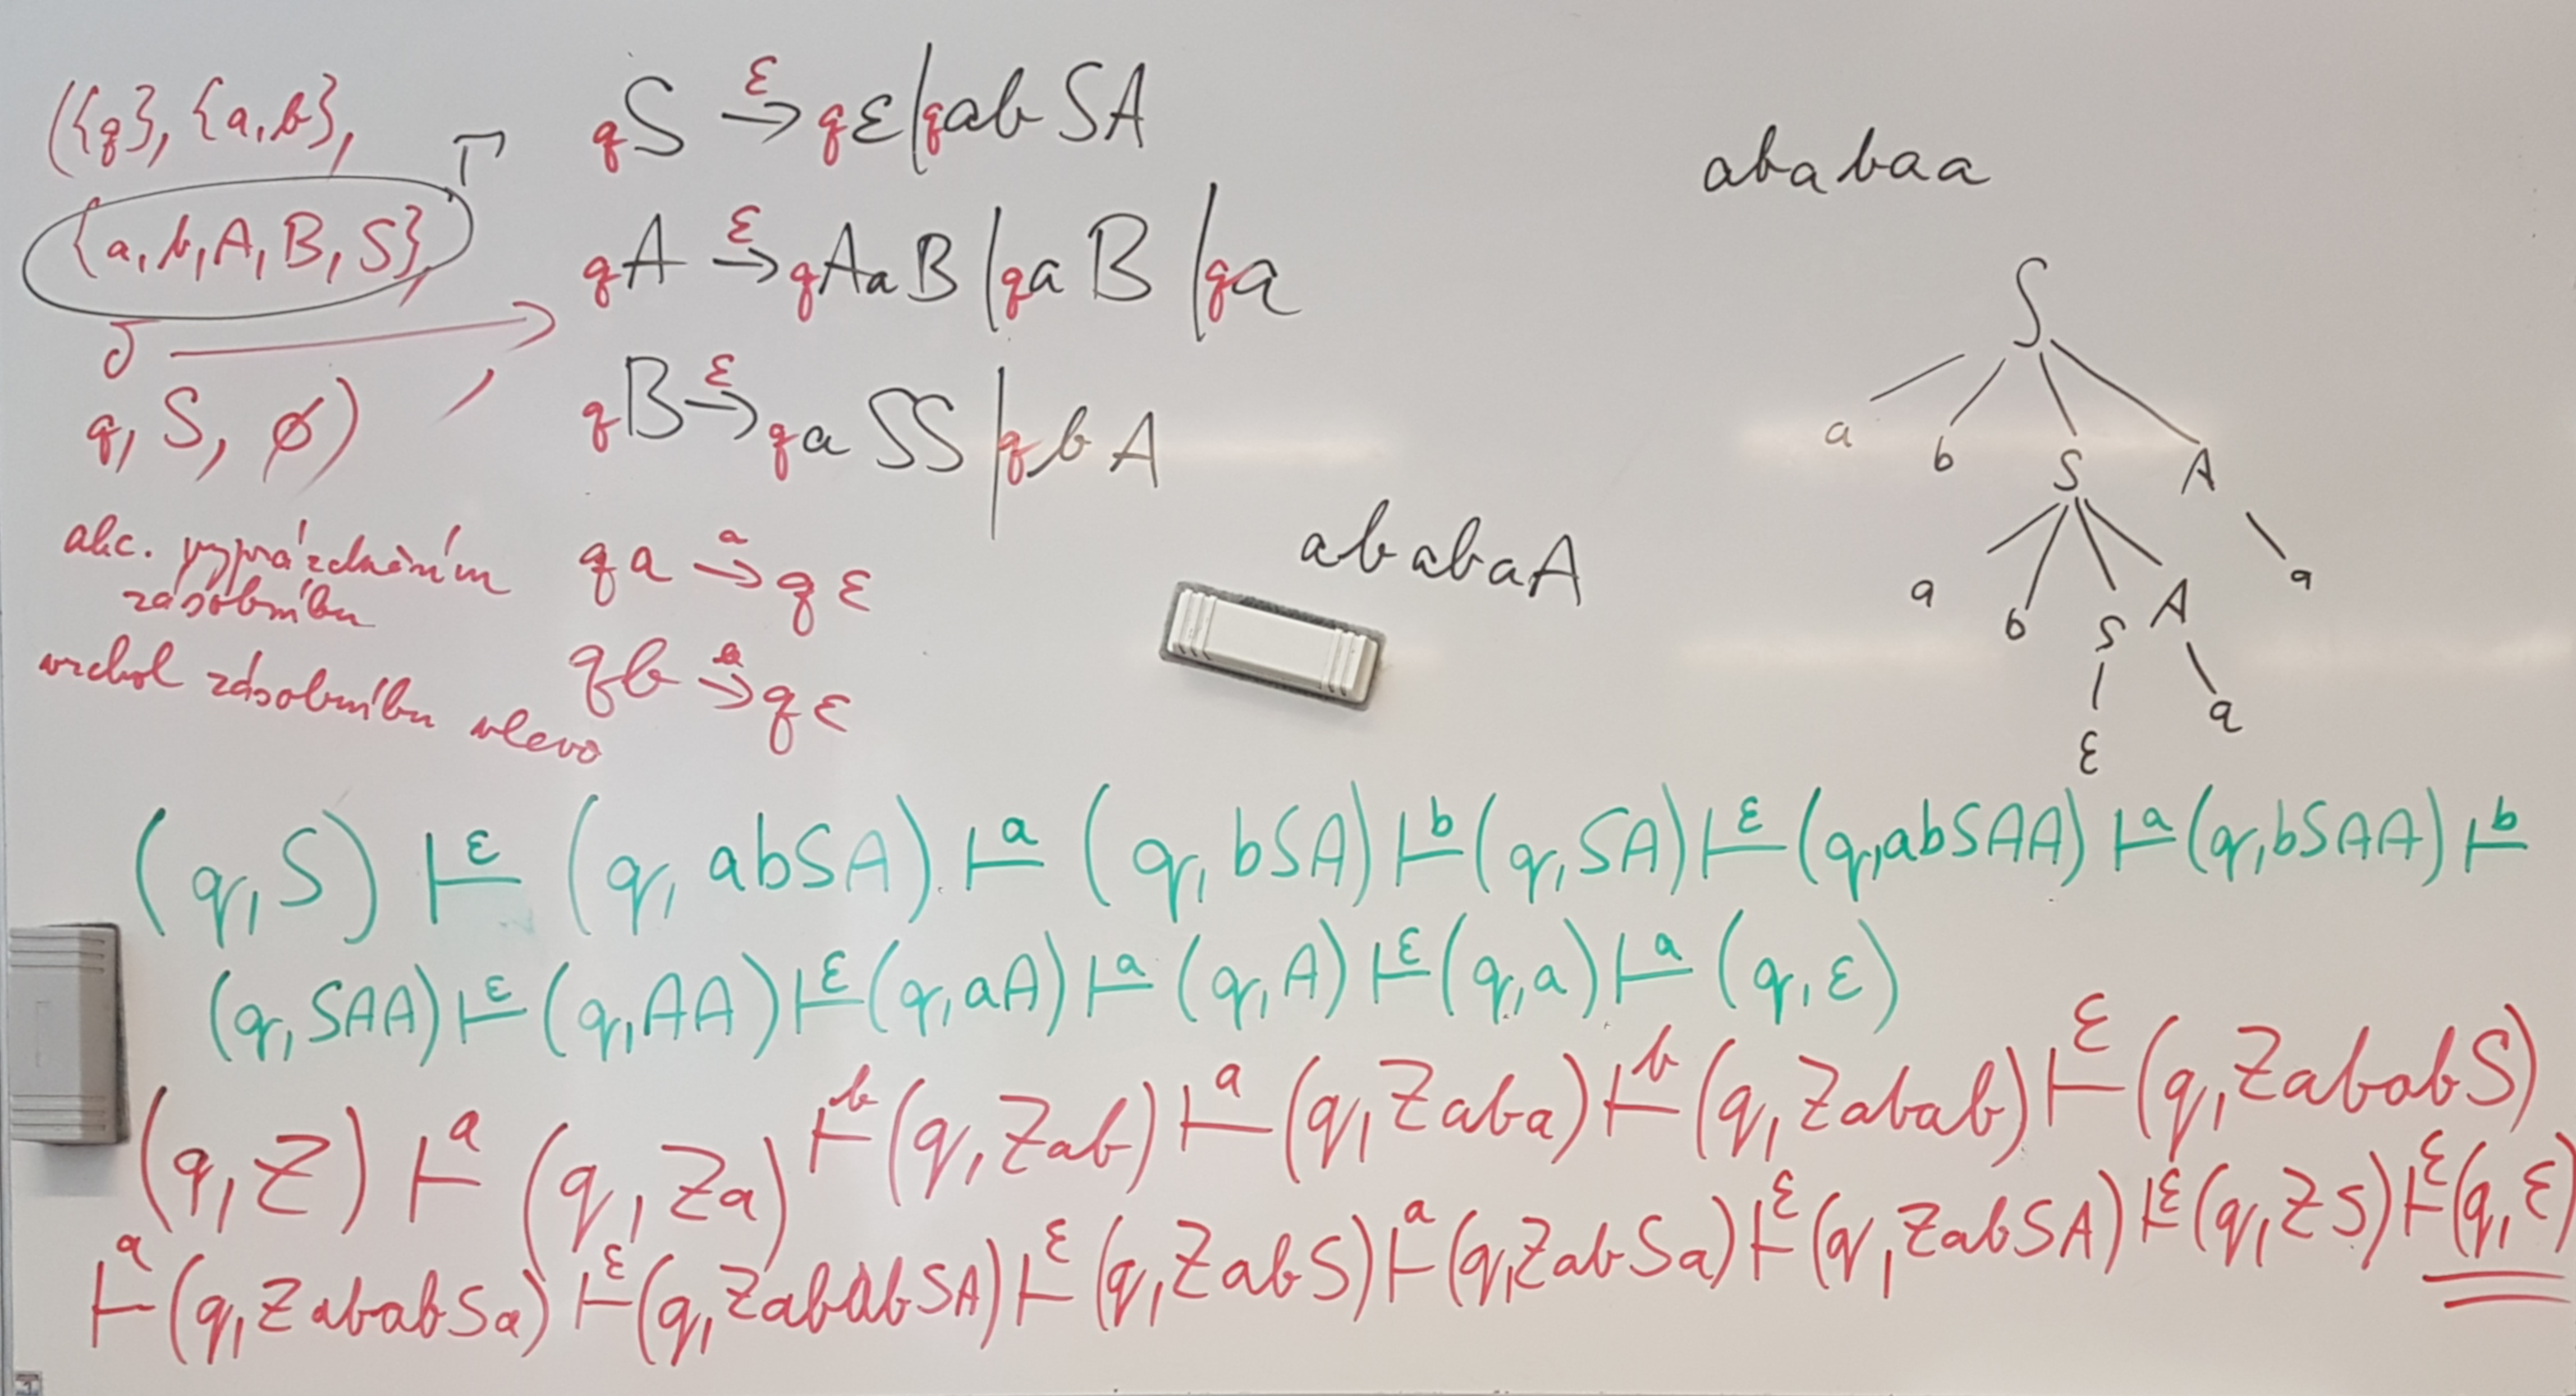 ({q}, {a,b},
{a,b,A,B,S}, Γ
δ →,
q, S, ∅)
akc. vyprázdněním
zásobníku
vrchol zásobníku vlevo
qS →ε qε | qabSA
qA →ε qAaB | qaB | qa
qB →ε qaSS | qbA
qa →a qε
qb →b qε
ababaA
ababaa
S
a b S A
a b S A a
ε a
(q,S) ⊢ε (q,abSA) ⊢a (q,bSA) ⊢b (q,SA) ⊢ε (q,abSAA) ⊢a (q,bSAA) ⊢b
(q,SAA) ⊢ε (q,AA) ⊢ε (q,aA) ⊢a (q,A) ⊢ε (q,a) ⊢a (q,ε)
(q,Z) ⊢a (q,Za) ⊢b (q,Zab) ⊢a (q,Zaba) ⊢b (q,Zabab) ⊢ε (q,ZababS)
⊢a (q,ZababSa) ⊢ε (q,ZababSA) ⊢ε (q,ZabS) ⊢a (q,ZabSa) ⊢ε (q,ZabSA) ⊢ε (q,ZS) ⊢ε (q,ε)